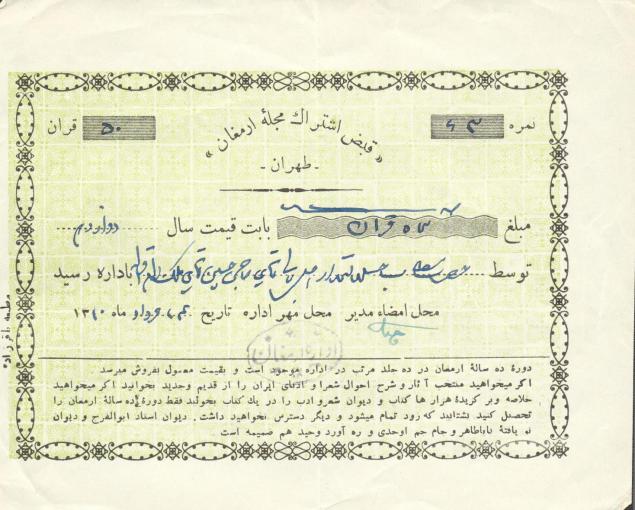 نمره ۶۳
« قبض اشتراك مجلهٔ ارمغان »
۵۰ قران
- طهران -
مبلغ پنجاه قران بابت قیمت سال دوازدهم
توسط باداره رسید
محل امضاء مدیر محل مهر اداره تاریخ ماه ۱۳۱۰
اداره ارمغان
دورهٔ ده سالهٔ ارمغان در ده جلد مرتب در اداره موجود است و بقیمت معمول بفروش میرسد
اگر میخواهید منتخب آثار و شرح احوال شعرا و ادبای ایران را از قدیم وجدید بخوانید اگر میخواهید
خلاصه وبرگزیدهٔ هزار ها کتاب و دیوان شعر و ادب را در یك کتاب بخوانید فقط دورهٔ ده سالهٔ ارمغان را
تحصیل کنید بشتابید که زود تمام میشود و دیگر دسترس نخواهید داشت . دیوان استاد ابوالفرج و دیوان
نو یافتهٔ باباطاهر و جام جم اوحدی و ره آورد وحید هم ضمیمه است